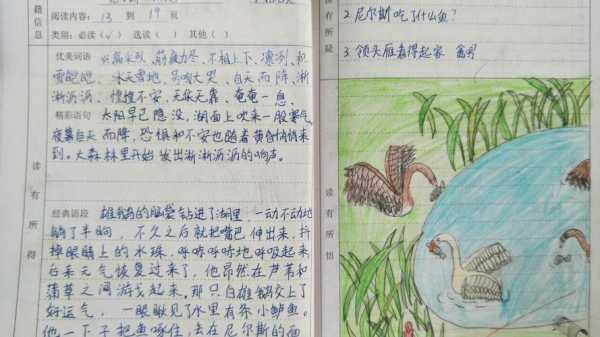 籍
信
息
阅读内容：13 到 19 页
类别：必读（√） 选读（ ） 其他（ ）
优美词语
筋疲力尽、不相上下、凛冽、饥
冰天雪地、号啕大哭、自天而降、淅
淅沥沥、惶惶不安、无依无靠、奄奄一息、
精彩语句 太阳早已隐没，湖面上吹来一股寒气，
夜幕自天而降，恐惧和不安也随着黄昏悄悄来
到。大森林里开始发出淅淅沥沥的响声。
读
有
所
得
经典语段 雄鹅的脑袋钻进了湖里，一动不动地
躺了半晌，不久之后就把嘴巴伸出来，抖
掉眼睛上的水珠，呼哧呼哧地呼吸起来
后来元气恢复过来了，他昂然在芦苇和
蒲草之间游弋起来。那只白雄鹅交上了
好运气，一眼瞅见了水里有条小鲈鱼。
他一下子把鱼啄住，去在尼尔斯的面
有
所
疑
2. 尼尔斯吃了什么鱼？
3. 领头雁看得起家鹅吗
读
有
所
悟